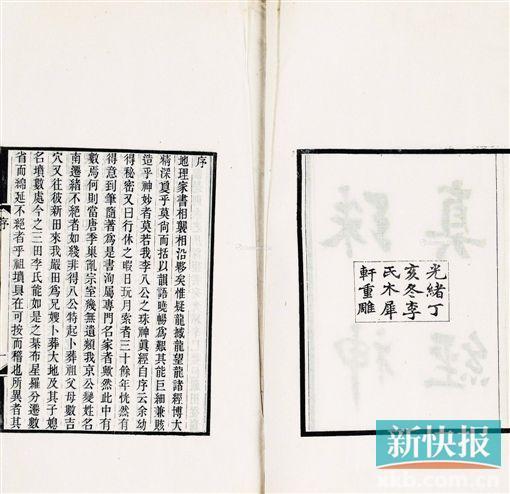 光緒丁
亥冬李
氏木犀
軒重雕
序
地理家書相襲相沿夥矣惟疑龍撼龍望龍諸經博大
精深夐乎莫尚而皆以韻語曉暢爲艱其能巨細兼賅
造乎神妙者莫若我李八公之珠神眞經自序云余幼
得秘密又曰行休之暇日玩月索者三十餘年恍然有
得意到筆隨著爲是書洵屬專門名家者歟然此中有
數焉何則當唐季巢亂宗室幾無遺類我京公變姓名
南遷緒不絶者如綫非得八公特起卜葬祖父母數吉
穴又往彼新田來我嚴田爲兄嫂卜葬大地及其子媳
名墳數處今之三田李氏能如是之棊布星羅分遷數
省而綿延不絶者乎祖墳具在可按而稽也所異者其
序
一
新快报
xkb.com.cn